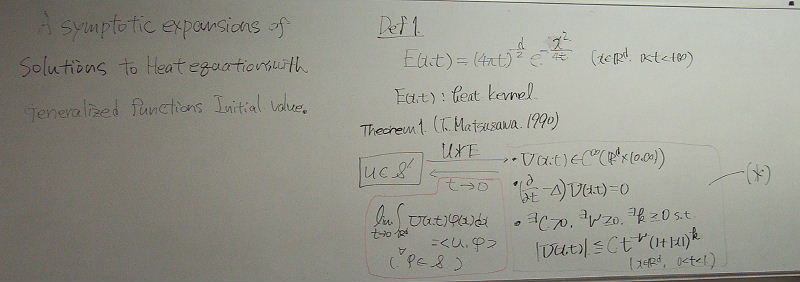 Asymptotic expansions of
Solutions to Heat equations with
generalized functions Initial value.
Def 1.
E(x,t) = (4πt)^{-d/2} e^{-x²/4t} (x∈ℝ^d, 0<t<+∞)
E(x,t) : heat kernel.
Theorem 1. (T. Matsuzawa. 1990)
u∈𝒮′
U*E
t→0
• U(x,t)∈C^∞(ℝ^d×(0,∞))
• (∂/∂t −Δ) U(x,t)=0
• ∃C>0, ∃ν≥0, ∃k≥0 s.t.
|U(x,t)| ≦ C t^{-ν} (1+|x|)^k
(x∈ℝ^d, 0<t<1)
(*)
lim_{t→0} ∫_{ℝ^d} U(x,t)φ(x)dx
=<u,φ>
(∀φ∈𝒮)